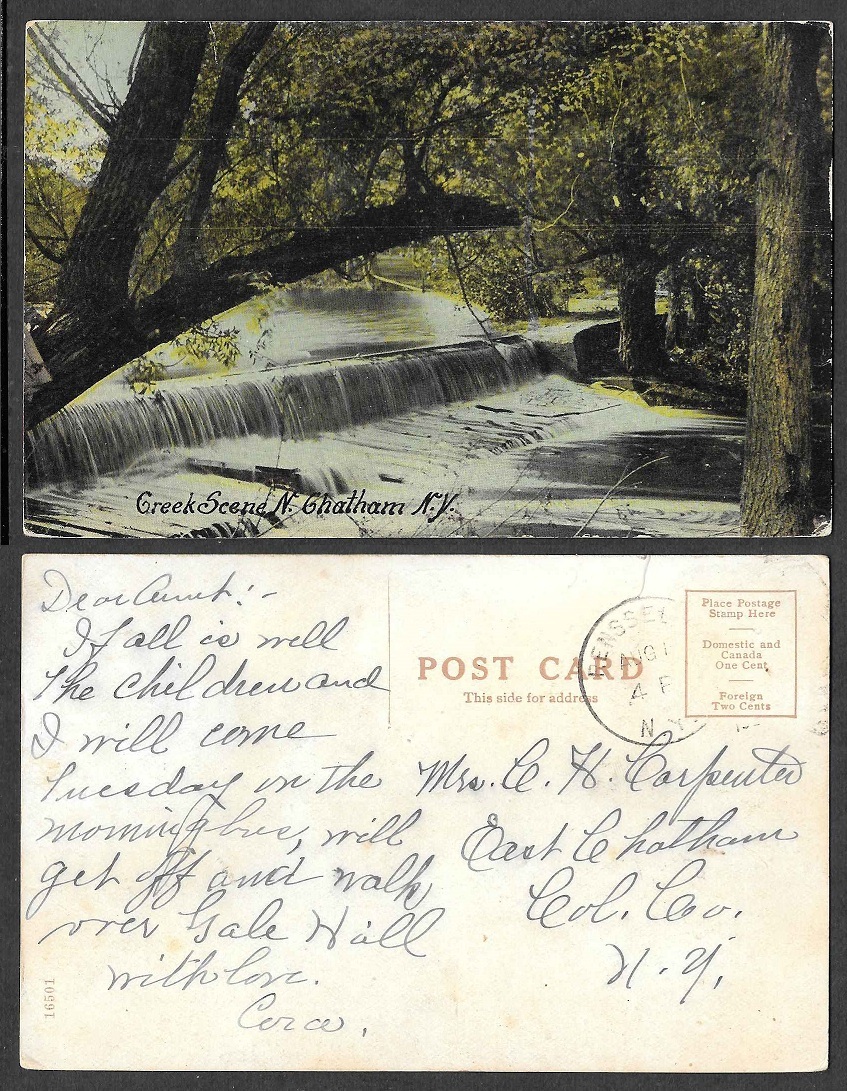 Creek Scene N. Chatham N.Y.
Dear Aunt:-
If all is well
the children and
I will come
Tuesday on the
morning bus, will
get off and walk
over Gale Hill
with love.
Cora.
16501
POST CARD
This side for address
RENSSEL
AUG 1
4 P
N.Y.
Place Postage
Stamp Here
Domestic and
Canada
One Cent
Foreign
Two Cents
Mrs. C. H. Carpenter
East Chatham
Col. Co.
N.Y.